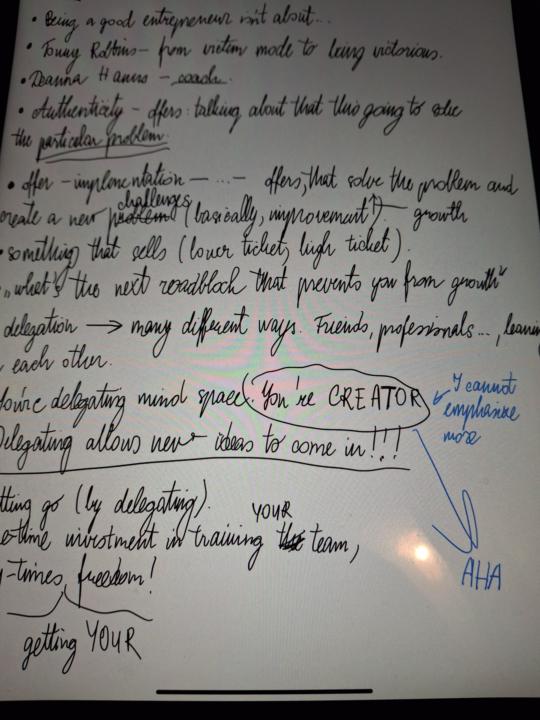 • Being a good entrepreneur isn't about...
• Tonny Robbins – from victim mode to being victorious.
• Deanna – coach.
• Authenticity – offers: talking about that this going to solve
the particular problem.
• offer – implementation – ... – offers, that solve the problem and
create a new challenges (basically, improvement) growth
• something that sells (lower ticket, high ticket).
„what's the next roadblock that prevents you from growth"
delegation → many different ways. Friends, professionals..., leaning
each other.
You're delegating mind space. You're CREATOR
I cannot
emphasize
more
Delegating allows new ideas to come in!!!
tting go (by delegating).
e-time investment in training YOUR team,
-times freedom!
getting YOUR
AHA